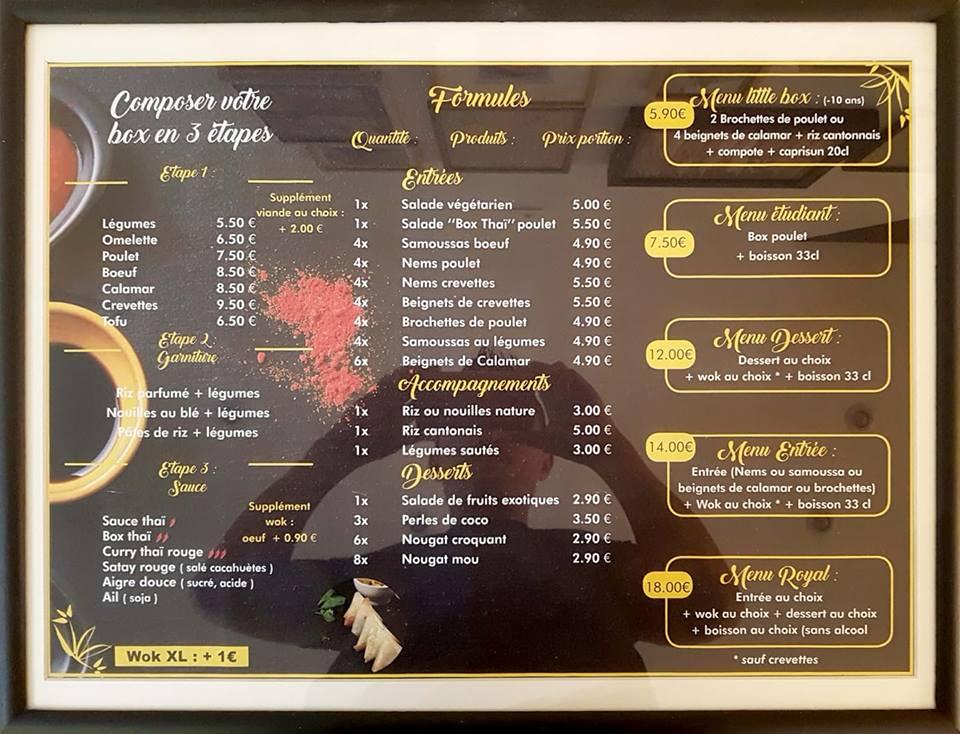 Composer votre
box en 3 étapes
Etape 1 :
Supplément
viande au choix :
+ 2.00 €
Légumes 5.50 €
Omelette 6.50 €
Poulet 7.50 €
Boeuf 8.50 €
Calamar 8.50 €
Crevettes 9.50 €
Tofu 6.50 €
Etape 2
Garniture
Riz parfumé + légumes
Nouilles au blé + légumes
Pâtes de riz + légumes
Etape 3 :
Sauce
Supplément
wok :
oeuf + 0.90 €
Sauce thaï
Box thaï
Curry thaï rouge
Satay rouge ( salé cacahuètes )
Aigre douce ( sucré, acide )
Ail ( soja )
Wok XL : + 1€
Formules
Quantité : Produits : Prix portion :
Entrées
1x Salade végétarien 5.00 €
1x Salade "Box Thaï" poulet 5.50 €
4x Samoussas boeuf 4.90 €
4x Nems poulet 4.90 €
4x Nems crevettes 5.50 €
4x Beignets de crevettes 5.50 €
4x Brochettes de poulet 4.90 €
4x Samoussas au légumes 4.90 €
6x Beignets de Calamar 4.90 €
Accompagnements
1x Riz ou nouilles nature 3.00 €
1x Riz cantonais 5.00 €
1x Légumes sautés 3.00 €
Desserts
1x Salade de fruits exotiques 2.90 €
3x Perles de coco 3.50 €
6x Nougat croquant 2.90 €
8x Nougat mou 2.90 €
Menu little box : (-10 ans)
5.90€
2 Brochettes de poulet ou
4 beignets de calamar + riz cantonnais
+ compote + caprisun 20cl
Menu étudiant :
7.50€
Box poulet
+ boisson 33cl
Menu Dessert :
12.00€
Dessert au choix
+ wok au choix * + boisson 33 cl
Menu Entrée :
14.00€
Entrée (Nems ou samoussa ou
beignets de calamar ou brochettes)
+ Wok au choix * + boisson 33 cl
Menu Royal :
18.00€
Entrée au choix
+ wok au choix + dessert au choix
+ boisson au choix (sans alcool
* sauf crevettes